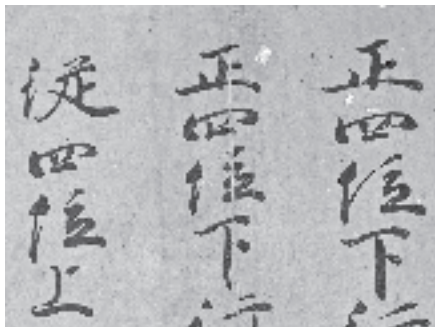 正四位下行
正四位下行
従四位上